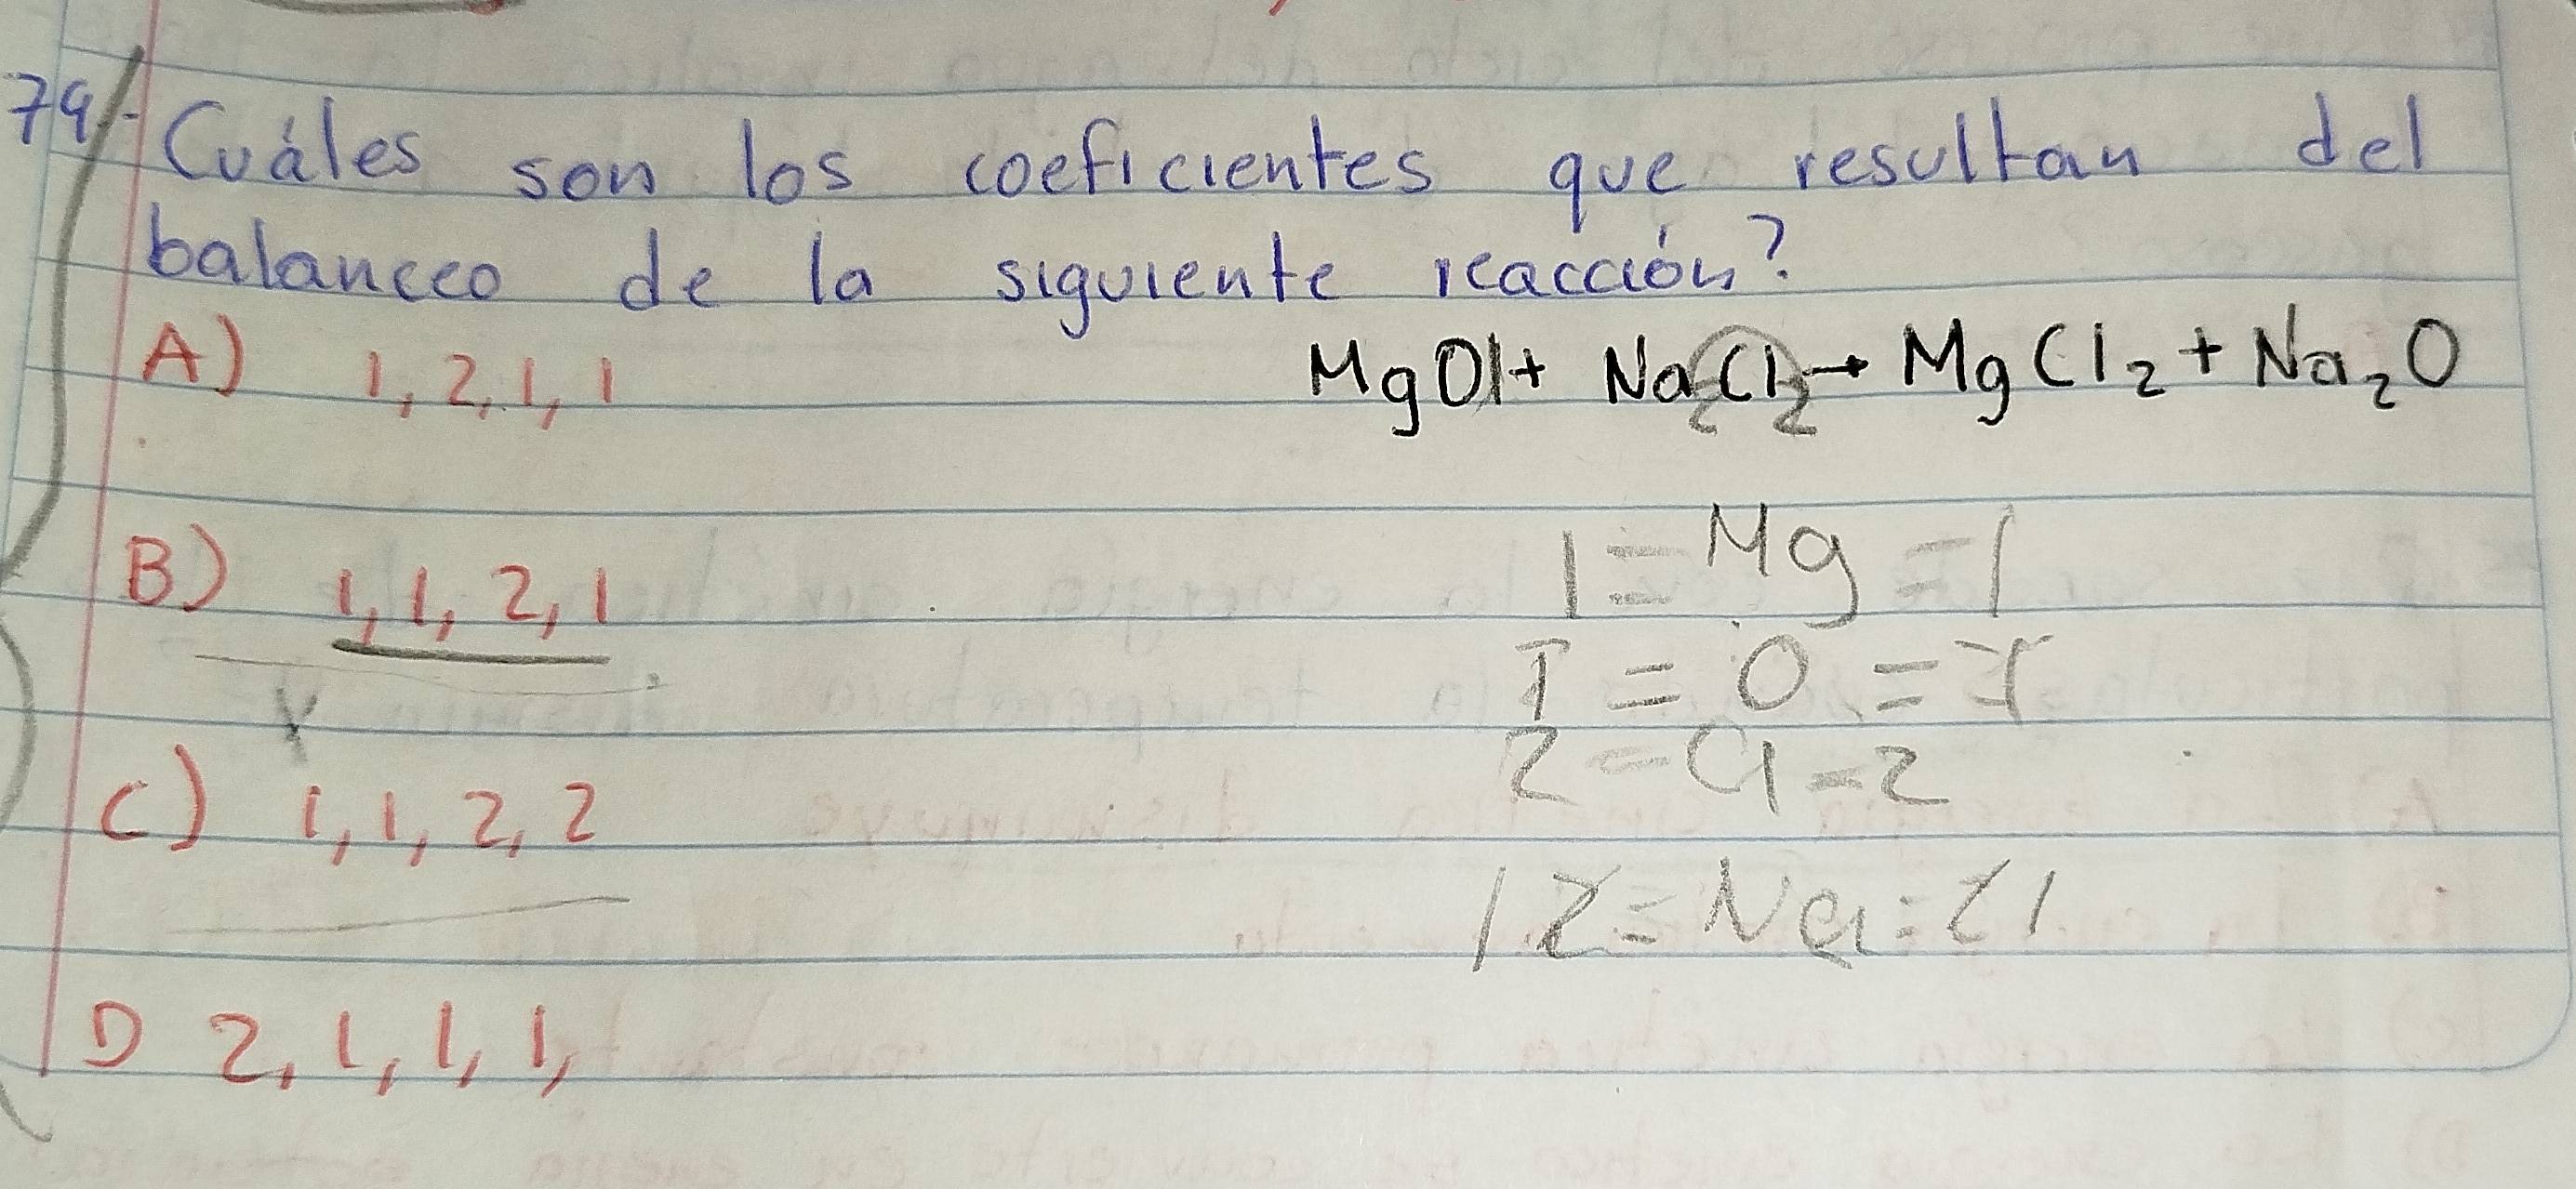 79.- Cuáles son los coeficientes que resultan del
balanceo de la siguiente reacción?
A) 1, 2, 1, 1
MgO + Na₂Cl₂ → MgCl₂ + Na₂O
B) 1, 1, 2, 1
1 = Mg = 1
1 = O = 1
C) 1, 1, 2, 2
2 = Cl = 2
1 2 = Na = 2 1
D 2, 1, 1, 1,